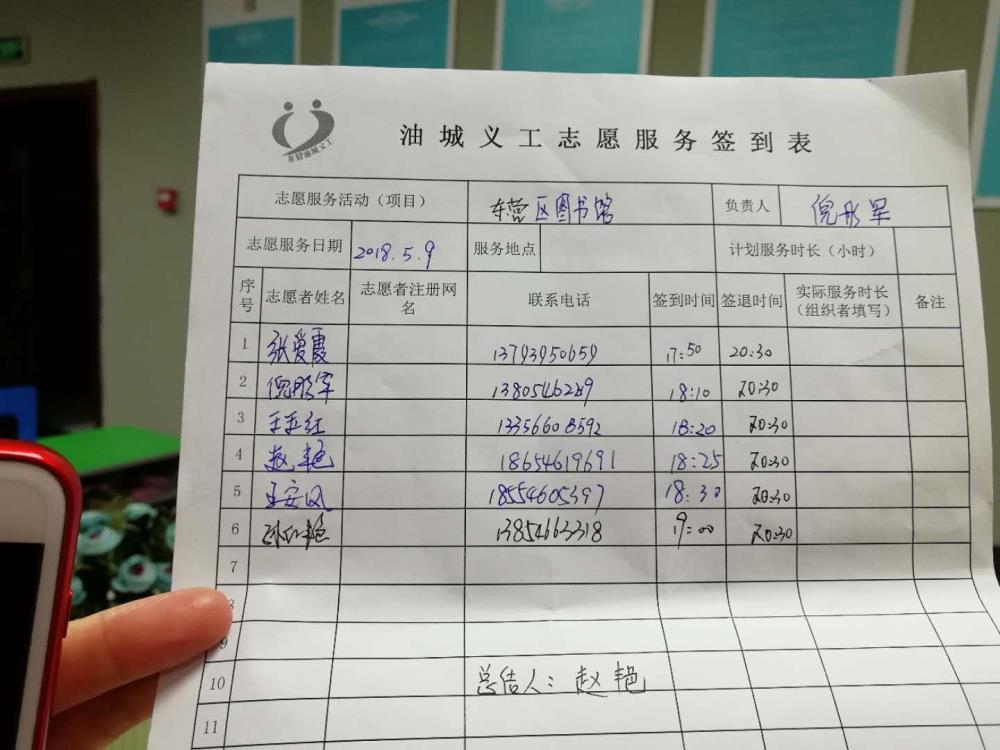 东营油城义工
油城义工志愿服务签到表
志愿服务活动（项目） 东营区图书馆 负责人 倪彤军
志愿服务日期 2018.5.9 服务地点 计划服务时长（小时）
序号 志愿者姓名 志愿者注册网名 联系电话 签到时间 签退时间 实际服务时长（组织者填写） 备注
1 张爱霞 13793950659 17:50 20:30
2 倪彤军 18:10 20:30
3 13356608592 18:20 20:30
4 赵艳 18654619691 18:25 20:30
5 王安凤 18554605397 18:30 20:30
6 13854663318 19:00 20:30
7
8
9
10 总结人：赵艳
11